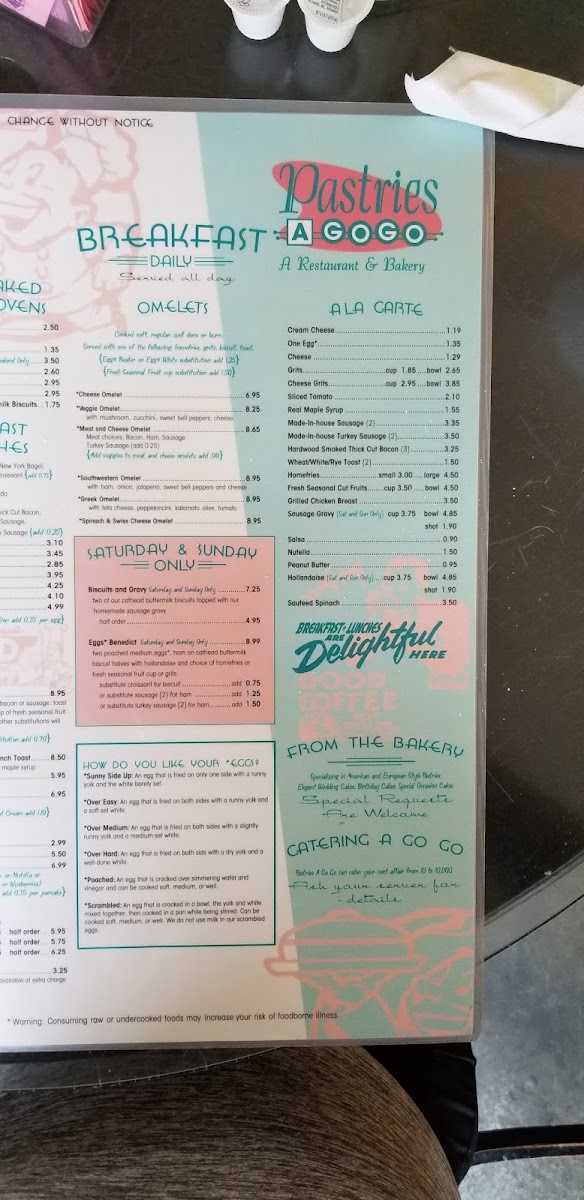 CHANGE WITHOUT NOTICE
Pastries
A GOGO
A Restaurant & Bakery
BREAKFAST
DAILY
Served all day
AKED
OVENS
2.50
1.35
Weekend Only 3.50
2.60
2.95
2.95
milk Biscuits 1.75
AST
HES
New York Bagel,
croissant {add 0.75}
ick Cut Bacon,
Sausage,
y Sausage {add 0.25}
3.10
3.45
2.85
3.95
4.25
4.10
4.99
tion add 0.35 per egg}
8.95
bacon or sausage, toast
p of fresh seasonal fruit
ther substitutions will
itution add 0.70}
nch Toast 8.50
maple syrup
5.95
6.95
2.99
5.50
6.99
or Nutella or
or blueberries)
add 0.75 per pancake}
half order 5.95
half order 5.75
half order 6.25
3.25
available at extra charge
OMELETS
Cooked soft, regular, well done or burn.
Served with one of the following: homefries, grits, biscuit, toast,
{Eggs Beater or Eggs White substitution add 1.25}
{Fresh Seasonal Fruit cup substitution add 1.50}
*Cheese Omelet 6.95
*Veggie Omelet 8.25
with mushroom, zucchini, sweet bell peppers, cheese
*Meat and Cheese Omelet 8.65
Meat choices: Bacon, Ham, Sausage
Turkey Sausage (add 0.25)
{Add veggies to meat and cheese omelets add .99}
*Southwestern Omelet 8.95
with ham, onion, jalapeno, sweet bell peppers and cheese
*Greek Omelet 8.95
with feta cheese, pepperoncini, kalamata olive, tomato
*Spinach & Swiss Cheese Omelet 8.95
SATURDAY & SUNDAY
ONLY
Biscuits and Gravy Saturday and Sunday Only 7.25
two of our cathead buttermilk biscuits topped with our
homemade sausage gravy
half order 4.95
Eggs* Benedict Saturday and Sunday Only 8.99
two poached medium eggs*, ham on cathead buttermilk
biscuit halves with hollandaise and choice of homefries or
fresh seasonal fruit cup or grits
substitute croissant for biscuit add 0.75
or substitute sausage (2) for ham add 1.25
or substitute turkey sausage (2) for ham add 1.50
HOW DO YOU LIKE YOUR *EGGS?
*Sunny Side Up: An egg that is fried on only one side with a runny
yolk and the white barely set.
*Over Easy: An egg that is fried on both sides with a runny yolk and
a soft-set white.
*Over Medium: An egg that is fried on both sides with a slightly
runny yolk and a medium-set white.
*Over Hard: An egg that is fried on both sids with a dry yolk and a
well-done white.
*Poached: An egg that is cracked over simmering water and
vinegar and can be cooked soft, medium, or well.
*Scrambled: An egg that is cracked in a bowl, the yolk and white
mixed together, then cooked in a pan while being stirred. Can be
cooked soft, medium, or well. We do not use milk in our scrambled
eggs.
A LA CARTE
Cream Cheese 1.19
One Egg* 1.35
Cheese 1.29
Grits cup 1.85 bowl 2.65
Cheese Grits cup 2.95 bowl 3.85
Sliced Tomato 2.10
Real Maple Syrup 1.55
Made-in-house Sausage (2) 3.35
Made-in-house Turkey Sausage (2) 3.50
Hardwood Smoked Thick Cut Bacon (3) 3.25
Wheat/White/Rye Toast (2) 1.50
Homefries small 3.00 large 4.50
Fresh Seasonal Cut Fruits cup 3.50 bowl 4.50
Grilled Chicken Breast 3.50
Sausage Gravy (Sat and Sun Only) cup 3.75 bowl 4.85
shot 1.90
Salsa 0.90
Nutella 1.50
Peanut Butter 0.95
Hollandaise (Sat and Sun Only) cup 3.75 bowl 4.85
shot 1.90
Sauteed Spinach 3.50
BREAKFAST & LUNCHES
ARE
Delightful
HERE
GOOD
COFFEE
FROM THE BAKERY
Specializing in American and European Style Pastries
Elegant Wedding Cakes, Birthday Cakes, Special Occasion Cakes
Special Requests
Are Welcome
CATERING A GO GO
Pastries A Go Go can cater your next affair from 10 to 10,000
Ask your server for
details
* Warning: Consuming raw or undercooked foods may increase your risk of foodborne illness.